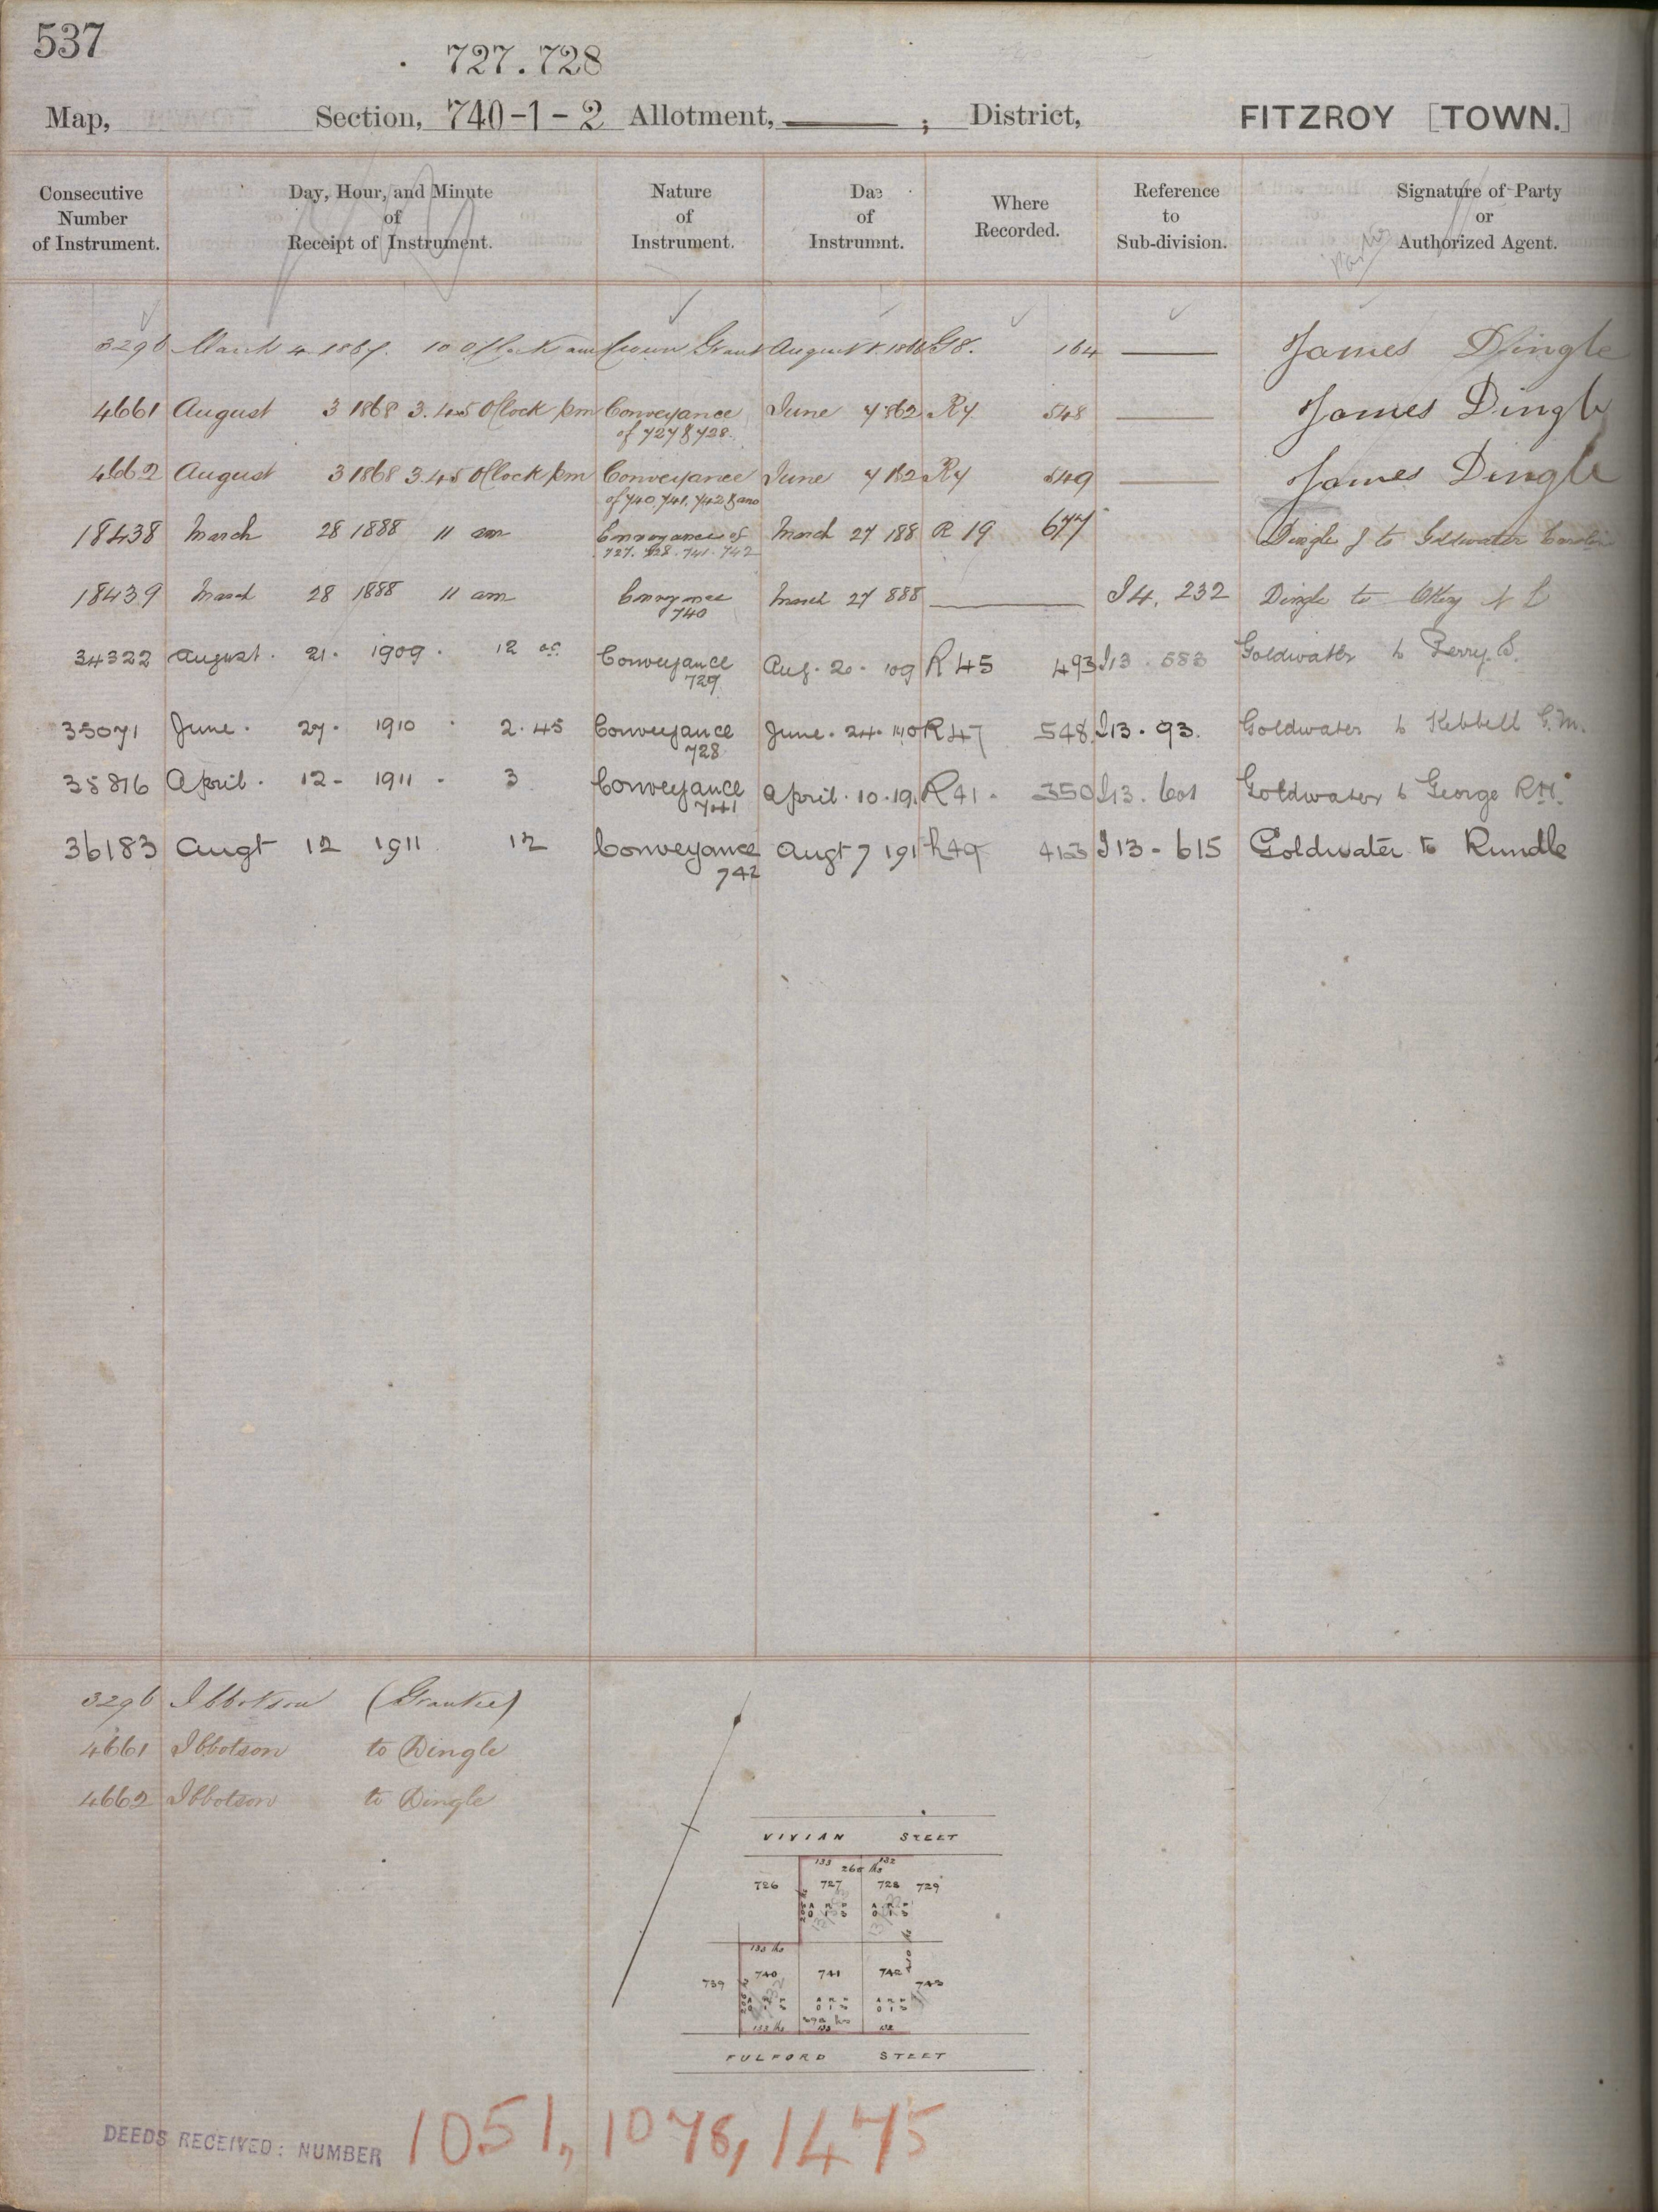 537
727.728
Map, Section, 740-1-2 Allotment, ; District, FITZROY [TOWN.]
Consecutive Number of Instrument.
Day, Hour, and Minute of Receipt of Instrument.
Nature of Instrument.
Da of Instrumnt.
Where Recorded.
Reference to Sub-division.
Signature of Party or Authorized Agent.
3296 March 4 1867. 10 OClock am Crown Grant August 1866 G8. 164 James Dingle
4661 August 3 1868 3.45 OClock pm Conveyance June 7 862 R7 548 James Dingle
of 727 & 728.
4662 August 3 1868 3.45 OClock pm Conveyance June 7 862 R7 549 James Dingle
of 740. 741. 742 & ano
18438 March 28 1888 11 am Conveyance of March 27 188 R 19 677 Dingle J to Goldwater Caroline
727. 728. 741. 742
18439 March 28 1888 11 am March 27 888 I4. 232 Dingle to
740
34322 August. 21. 1909. 12 oc Conveyance Aug. 20. 109 R 45 493 I13. 583 Goldwater to Perry S.
35071 June. 27. 1910. 2.45 Conveyance June. 24. R47 548 I13. 93. Goldwater to Kebbell G.M.
728
35876 April. 12 - 1911 - 3 Conveyance April. 10. 19. R41. 350 I13. 601 Goldwater to George RH.
741
36183 Augt 12 1911 12 Conveyance Augt 7 191 R49 413 I13 - 615 Goldwater to Rundle
742
3296 Ibbotson (Grantee)
4661 Ibbotson to Dingle
4662 Ibbotson to Dingle
VIVIAN STEET
133 132
265 lks
726 727 728 729
A R P A R P
0 1 5 0 1 5
133 lks
739 740 741 742 743
A R P A R P A R P
0 1 5 0 1 5 0 1 5
133 lks 133 132
FULFORD STEET
DEEDS RECEIVED: NUMBER 1051, 1076, 1475